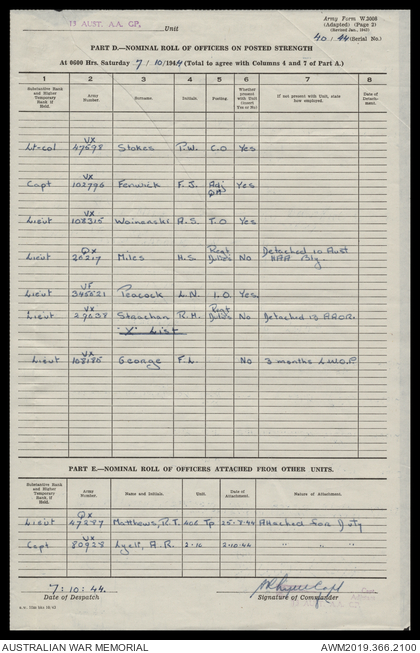 13 AUST. A.A. GP. Unit
Army Form W.3008
(Adapted) (Page 2)
40 : 44 (Serial No.)
PART D.—NOMINAL ROLL OF OFFICERS ON POSTED STRENGTH
At 0600 Hrs. Saturday 7 / 10 / 1944 (Total to agree with Columns 4 and 7 of Part A.)
1 2 3 4 5 6 7 8
Substantive Rank and Higher Temporary Rank if Held. Army Number. Surname. Initials. Posting. Whether present with Unit (Insert Yes or No) If not present with Unit, state how employed. Date of Detachment.
Lt-col VX 47598 Stokes P.W. C.O Yes
Capt VX 102796 Fenwick F.J. Adj Yes
Lieut VX 108315 A.S. T.O Yes
Lieut QX 20217 Miles H.S. Regt Duties No Detached 10 Aust HAA Bty.
Lieut VF 345521 Peacock L.N. I.O. Yes.
Lieut VX 27038 Strachan R.H. Regt Duties No Detached 13 AAOR.
"X" List
Lieut VX 108185 George F.L. No 3 months L.W.O.P.
PART E.—NOMINAL ROLL OF OFFICERS ATTACHED FROM OTHER UNITS.
Substantive Rank and Higher Temporary Rank if Held. Army Number. Name and Initials. Unit. Date of Attachment. Nature of Attachment.
1 2 3 5 6 7
Lieut QX 47287 Matthews, R.T. 406 Tp 25-8-44 Attached for Duty
Capt VX 80928 Lyell, A.R. 2-10-44 " " "
7 : 10 : 44.
Date of Despatch
Signature of Commander
AUSTRALIAN WAR MEMORIAL
AWM2019.366.2100